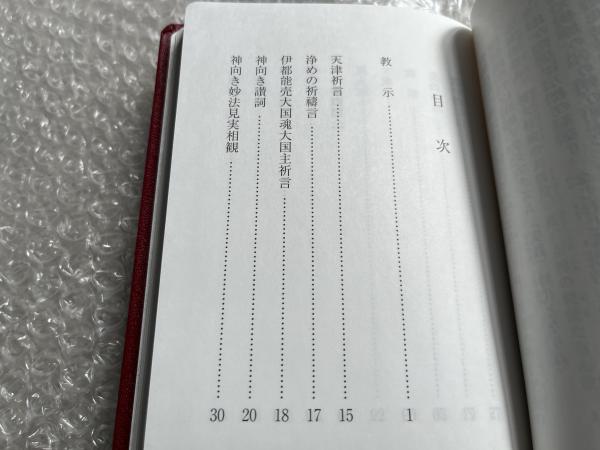 目次
教示 1
天津祈言 15
浄めの祈禱言 17
伊都能売大国魂大国主祈言 18
神向き讃詞 20
神向き妙法見実相観 30